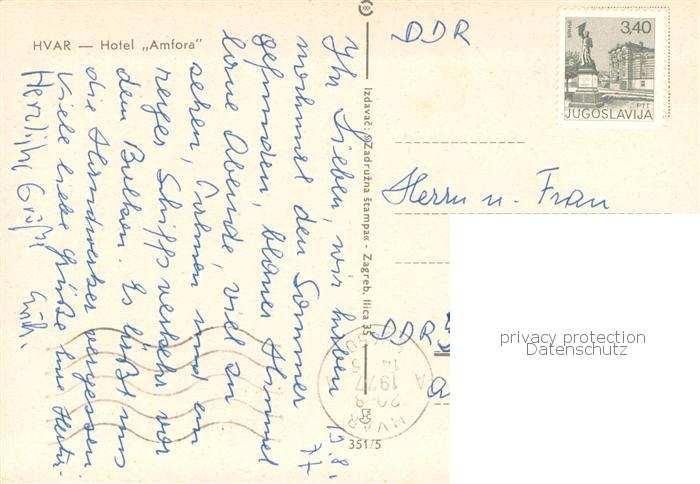 HVAR — Hotel „Amfora"
Ihr Lieben, wir haben 19.8.
nochmal den Sommer 77
gefunden, blauer Himmel
laue Abende, viel zu
sehen, Palmen und ein
reges Schiffsverkehr vor
den Balkon. Es läßt uns
die Handwerker vergessen
Viele liebe Grüße Eure
Herzliche Grüße
Izdavač: »Zadružna štampa« - Zagreb, Ilica 35
351/5
DDR
3,40
PTT
JUGOSLAVIJA
Herrn u. Frau
DDR
HVAR
20.8
1977
A
privacy protection
Datenschutz